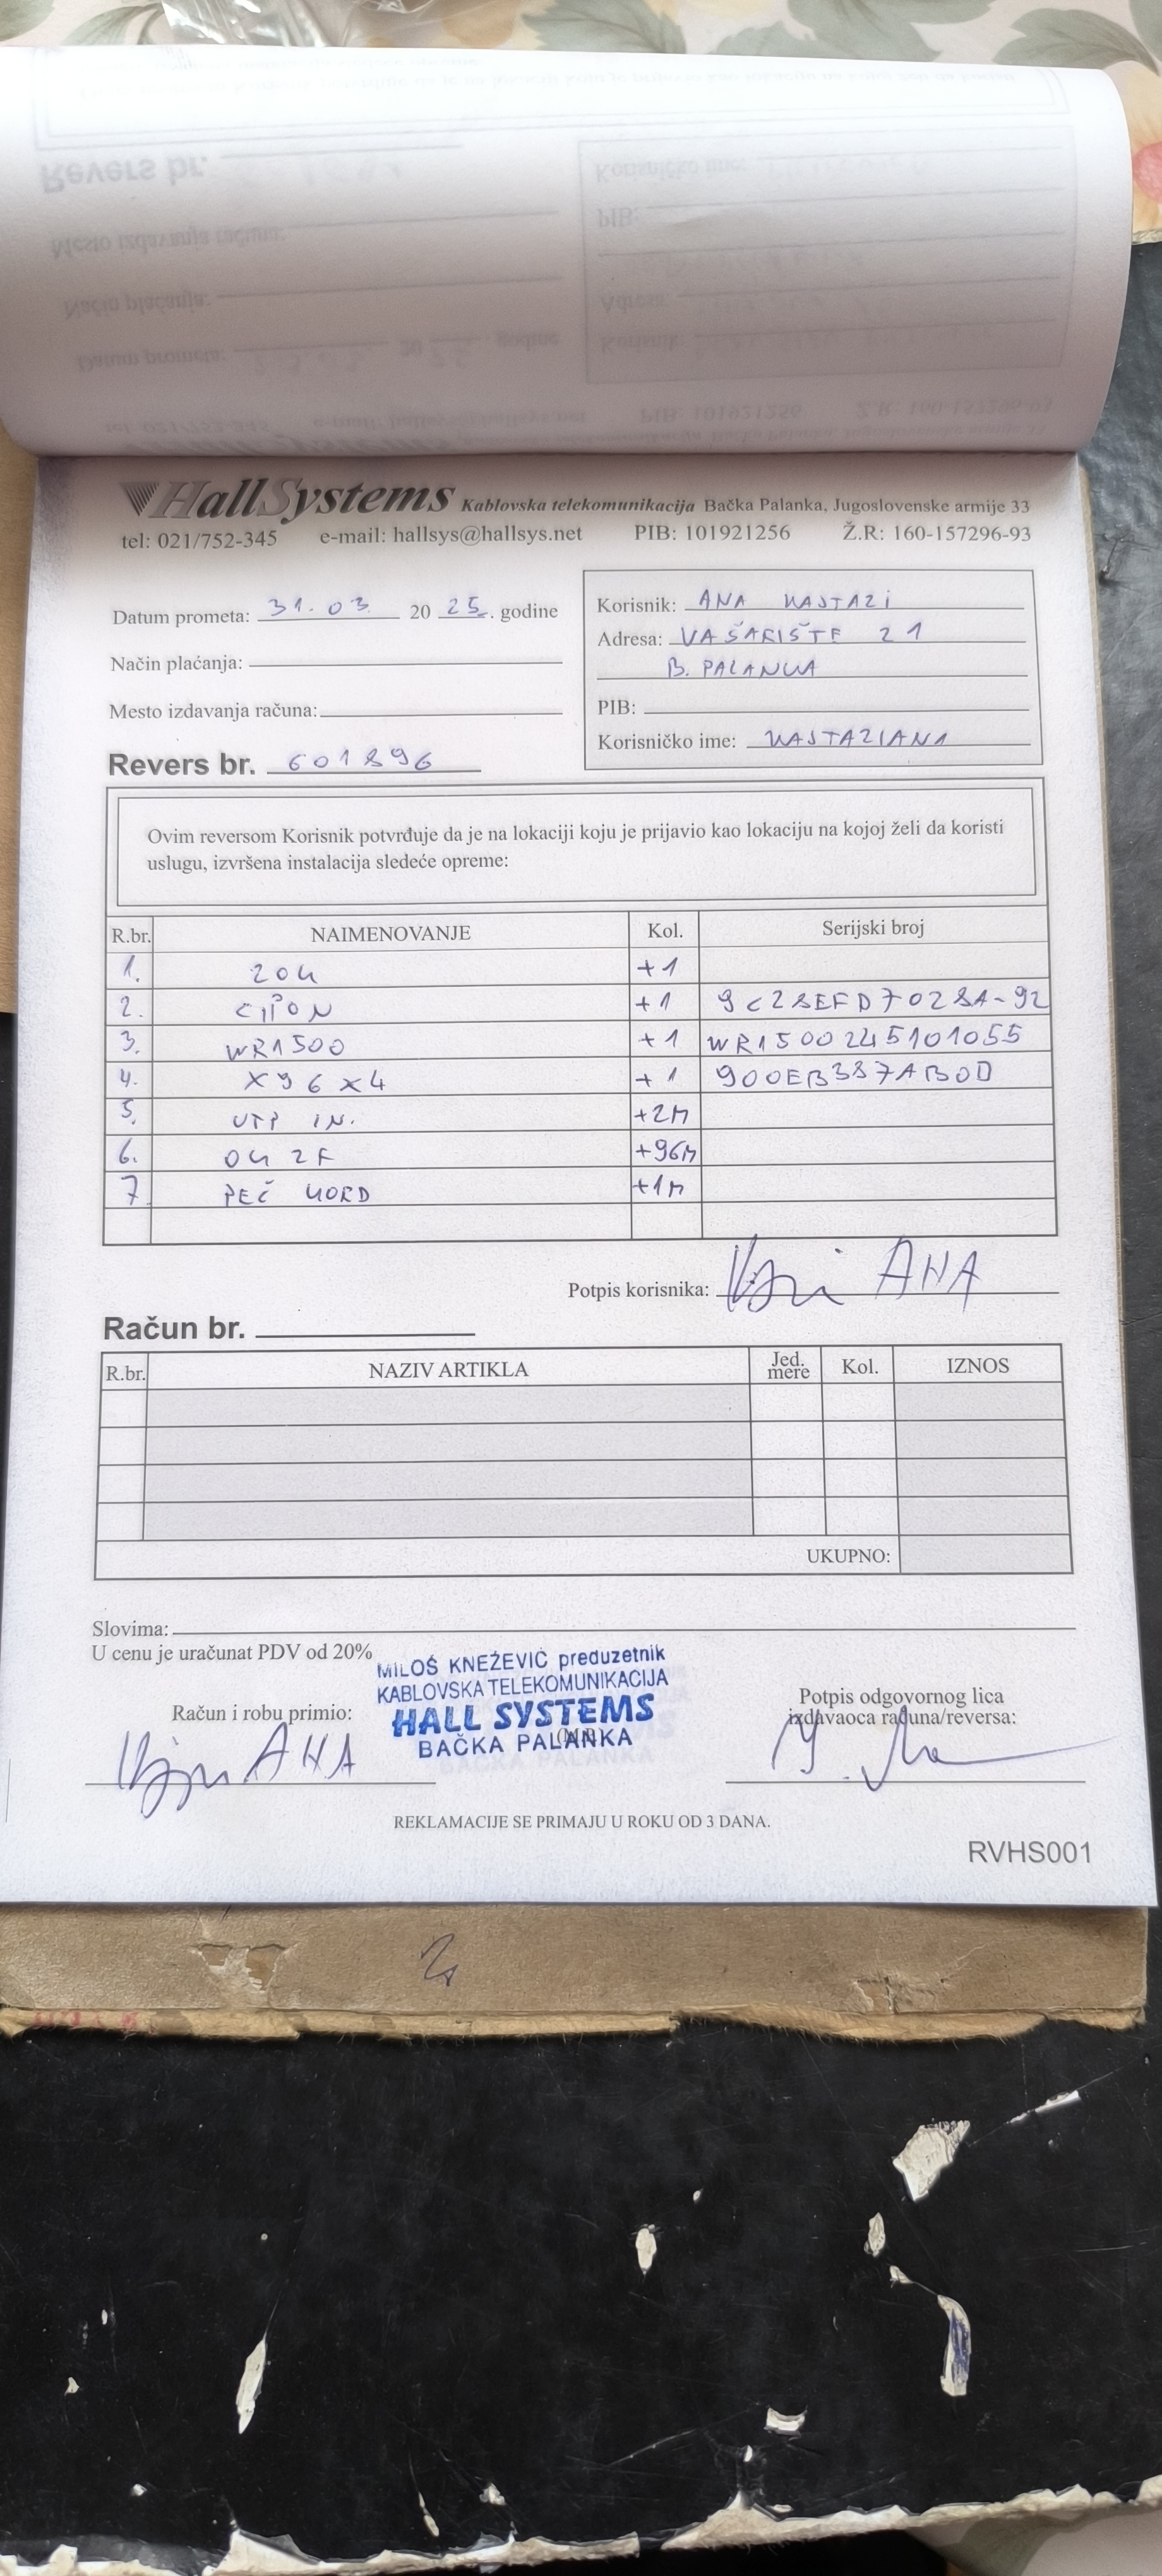 HallSystems Kablovska telekomunikacija Bačka Palanka, Jugoslovenske armije 33
tel: 021/752-345 e-mail: hallsys@hallsys.net PIB: 101921256 Ž.R: 160-157296-93
Datum prometa: 31.03 20 25. godine
Način plaćanja:
Mesto izdavanja računa:
Revers br. 601896
Korisnik: ANA KASTAZI
Adresa: VAŠARIŠTE 21
B. PALANKA
PIB:
Korisničko ime: KASTAZIANA
Ovim reversom Korisnik potvrđuje da je na lokaciji koju je prijavio kao lokaciju na kojoj želi da koristi
uslugu, izvršena instalacija sledeće opreme:
R.br. NAIMENOVANJE Kol. Serijski broj
1. ZOK +1
2. +1 9C28EFD7028A-92
3. WR1500 +1 WR1500245101055
4. X96X4 +1 900EB387AB0D
5. UTP IN. +2M
6. OK 2F +96M
7. PEČ KORD +1M
Potpis korisnika: ANA
Račun br.
R.br. NAZIV ARTIKLA Jed. mere Kol. IZNOS
UKUPNO:
Slovima:
U cenu je uračunat PDV od 20%
MILOŠ KNEŽEVIĆ preduzetnik
KABLOVSKA TELEKOMUNIKACIJA
HALL SYSTEMS
BAČKA PALANKA
Račun i robu primio:
ANA
Potpis odgovornog lica
izdavaoca računa/reversa:
REKLAMACIJE SE PRIMAJU U ROKU OD 3 DANA.
RVHS001